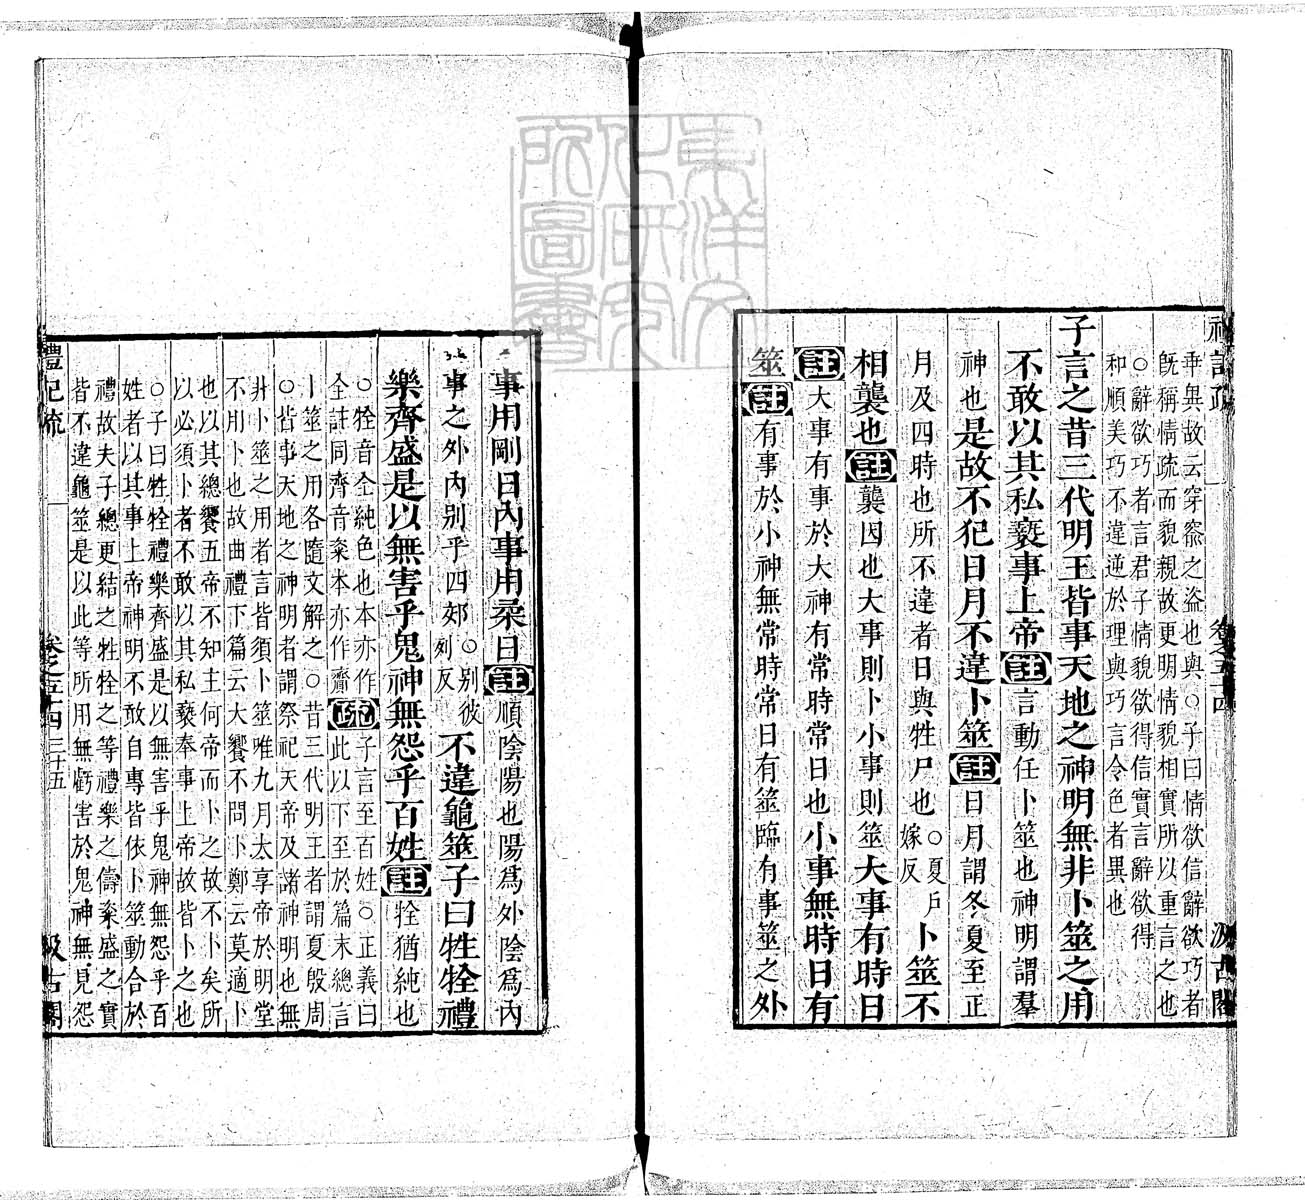 禮記疏 卷之五十四 汲古閣
垂異故云穿窬之盜也與○子曰情欲信辭欲巧者
旣稱情疏而貌親故更明情貌相實所以重言之也
○辭欲巧者言君子情貌欲得信實言辭欲得
和順美巧不違逆於理與巧言令色者異也
子言之昔三代明王皆事天地之神明無非卜筮之用
不敢以其私褻事上帝註言動任卜筮也神明謂羣
神也是故不犯日月不違卜筮註日月謂冬夏至正
月及四時也所不違者日與牲尸也○夏戶嫁反卜筮不
相襲也註襲因也大事則卜小事則筮大事有時日
註大事有事於大神有常時常日也小事無時日有
筮註有事於小神無常時常日有筮臨有事筮之外
事用剛日內事用柔日註順陰陽也陽爲外陰爲內
事之外內別乎四郊○别彼列反不違龜筮子曰牲牷禮
樂齊盛是以無害乎鬼神無怨乎百姓註牷猶純也
○牷音全純色也本亦作全註同齊音粢本亦作齌疏子言至百姓○正義曰此以下至於篇末總言
卜筮之用各隨文解之○昔三代明王者謂夏殷周
○皆事天地之神明者謂祭祀天帝及諸神明也無
非卜筮之用者言皆須卜筮唯九月大享帝於明堂
不用卜也故曲禮下篇云大饗不問卜鄭云莫適卜
也以其總饗五帝不知主何帝而卜之故不卜矣所
以必須卜者不敢以其私褻奉事上帝故皆卜之也
○子曰牲牷禮樂齊盛是以無害乎鬼神無怨乎百
姓者以其事上帝神明不敢自專皆依卜筮動合於
禮故夫子總更結之牲牷之等禮樂之儔粢盛之實
皆不違龜筮是以此等所用無虧害於鬼神無見怨
禮記疏 卷之五十四 三十五 汲古閣
東洋文化研究所圖書